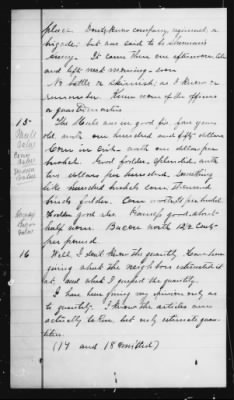 place. Don't know company, regiment or
brigade; but was said to be Sherman's
army. It came there one afternoon late
and left next morning - soon
No battle or skirmish; as I know or
remember. Knew none of the officers
or quartermasters
15- The Mule was in good fix four years
Mule
value
Corn
value
Fodder
value
old worth one hundred and fifty dollars
Corn in crib - worth one dollar per
bushel. Good fodder, splendid, worth
two dollars per hundred. Something
like hundred bushels corn thousand
bunds fodder. Corn worth $1 per bushel.
Fodder good also. Fence good, about
half worn. Bacon worth 12 1/2 cents
per pound.
16 Well, I don't know the quantity. I am
giving about the neighbors estimated it
at and what I judged the quantity.
I have been giving my opinion only as
to quantity. I know the articles were
actually taken but only estimate quan-
tities.
(17 and 18 omitted)